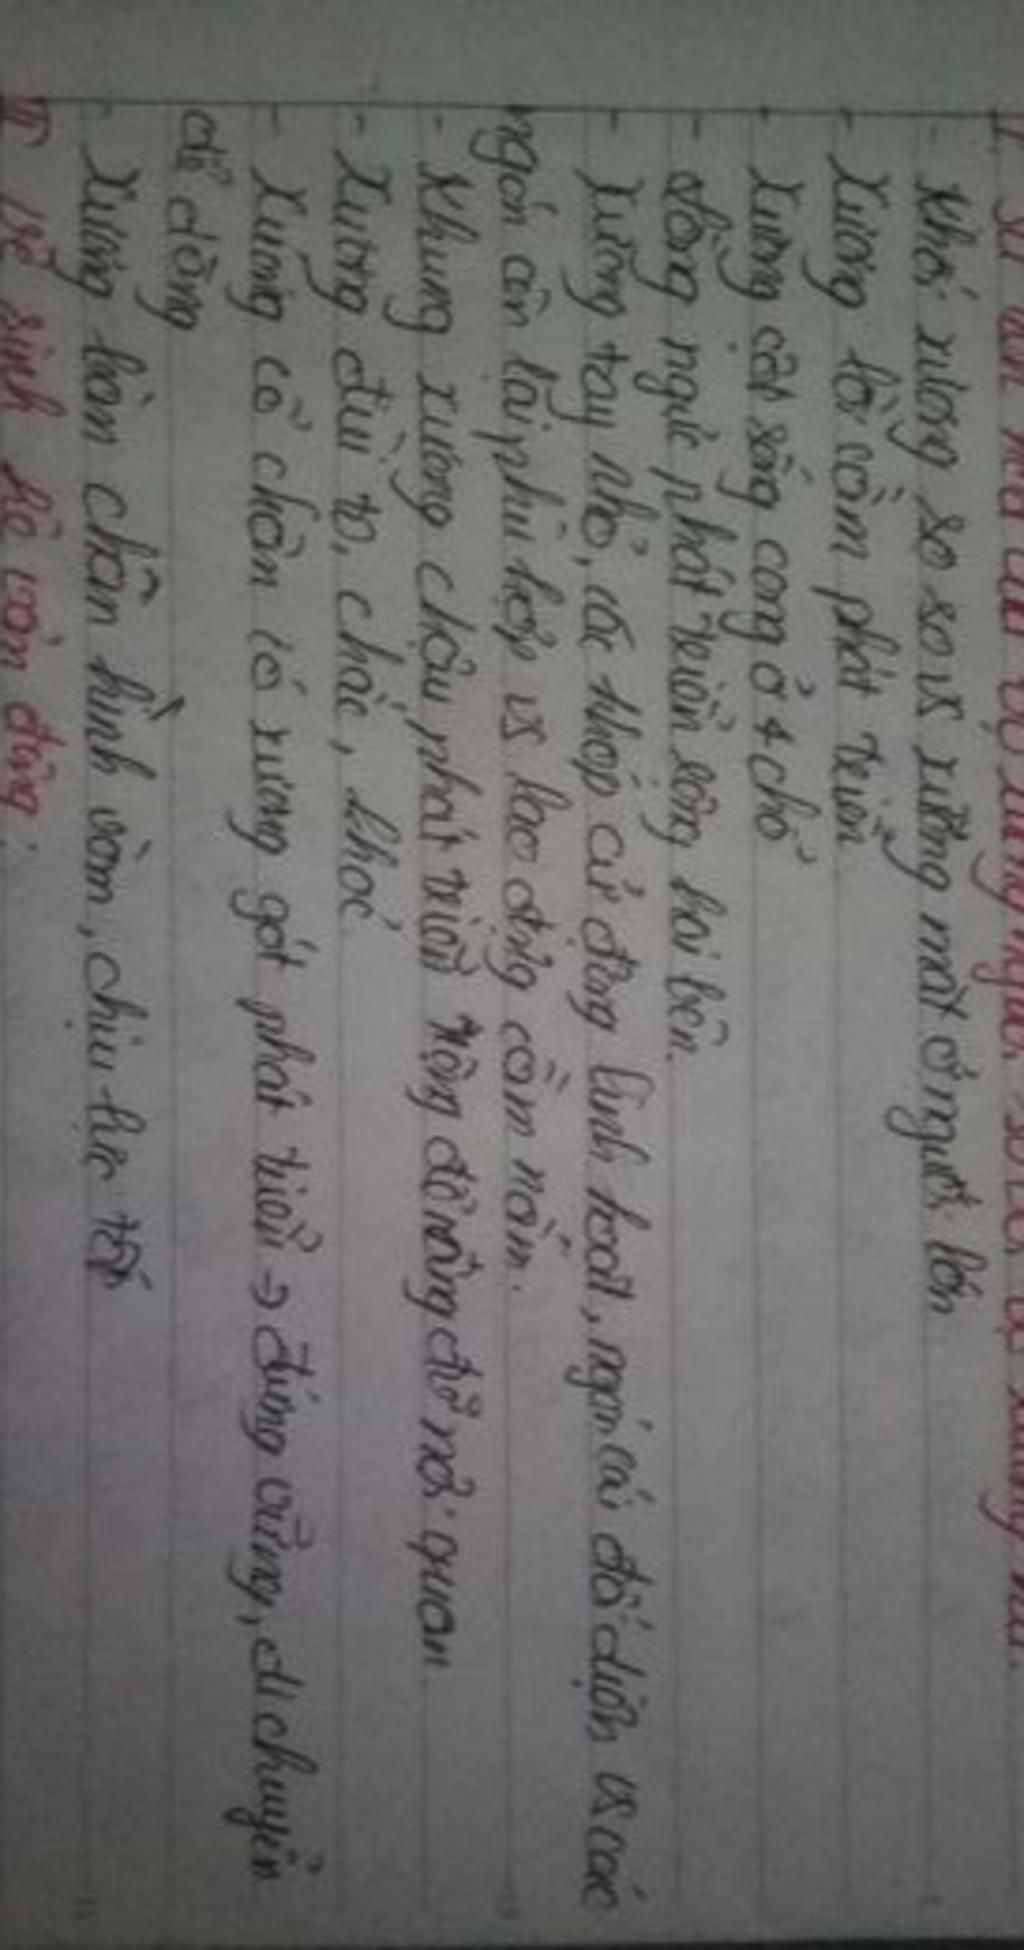 I. Sự tiến hóa của bộ xương người so với bộ xương thú.
- Khối xương sọ so vs xương mặt ở người lớn
- Xương lồi cằm phát triển
- Xương cột sống cong ở 4 chỗ
- Lồng ngực phát triển sang hai bên.
- Xương tay nhỏ, các khớp cử động linh hoạt, ngón cái đối diện vs các
ngón còn lại phù hợp vs lao động cầm nắm.
- Khung xương chậu phát triển rộng để nâng đỡ nội quan.
- Xương đùi to, chắc, khỏe
- Xương cổ chân có xương gót phát triển → đứng vững, di chuyển
dễ dàng
- Xương bàn chân hình vòm, chịu lực tốt
Vệ sinh hệ vận động.